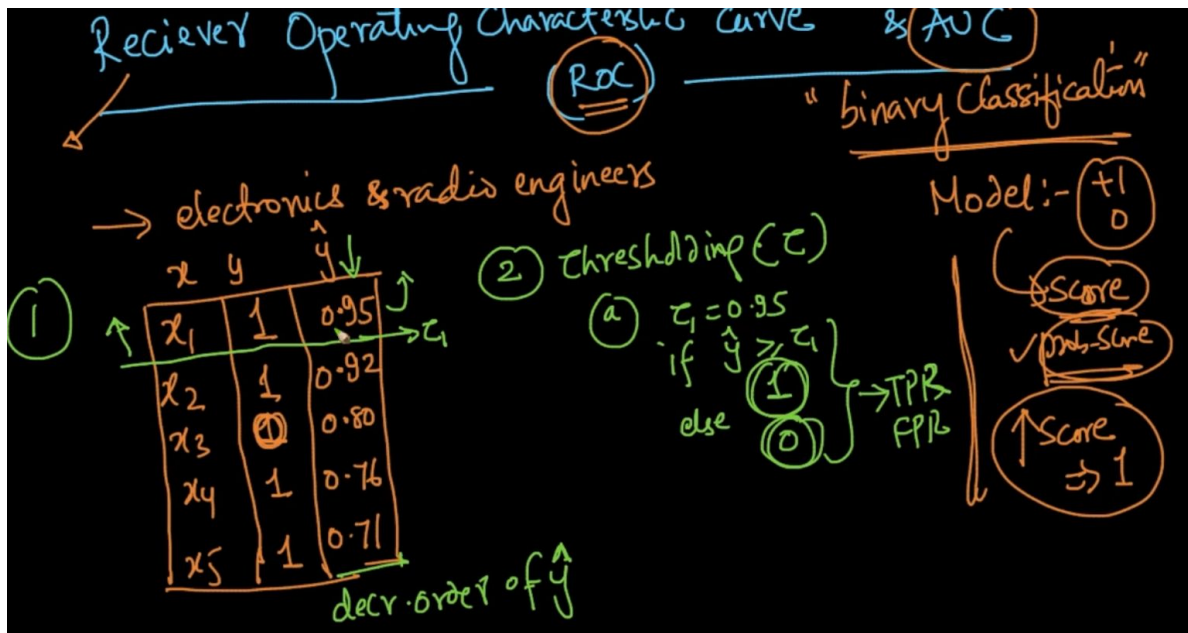 Reciever Operating Characteristic Curve & AUC
(ROC)
"binary Classification"
→ electronics & radio engineers
Model:- +1
0
score
✓ prob-score
↑ Score
⇒ 1
1
x y ŷ
x1 1 0.95
→ τ1
x2 1 0.92
x3 0.80
x4 1 0.76
x5 1 0.71
decr. order of ŷ
2 Thresholding (τ)
a τ1 = 0.95
if ŷ ≥ τ1
1
else 0
→ TPR
FPR